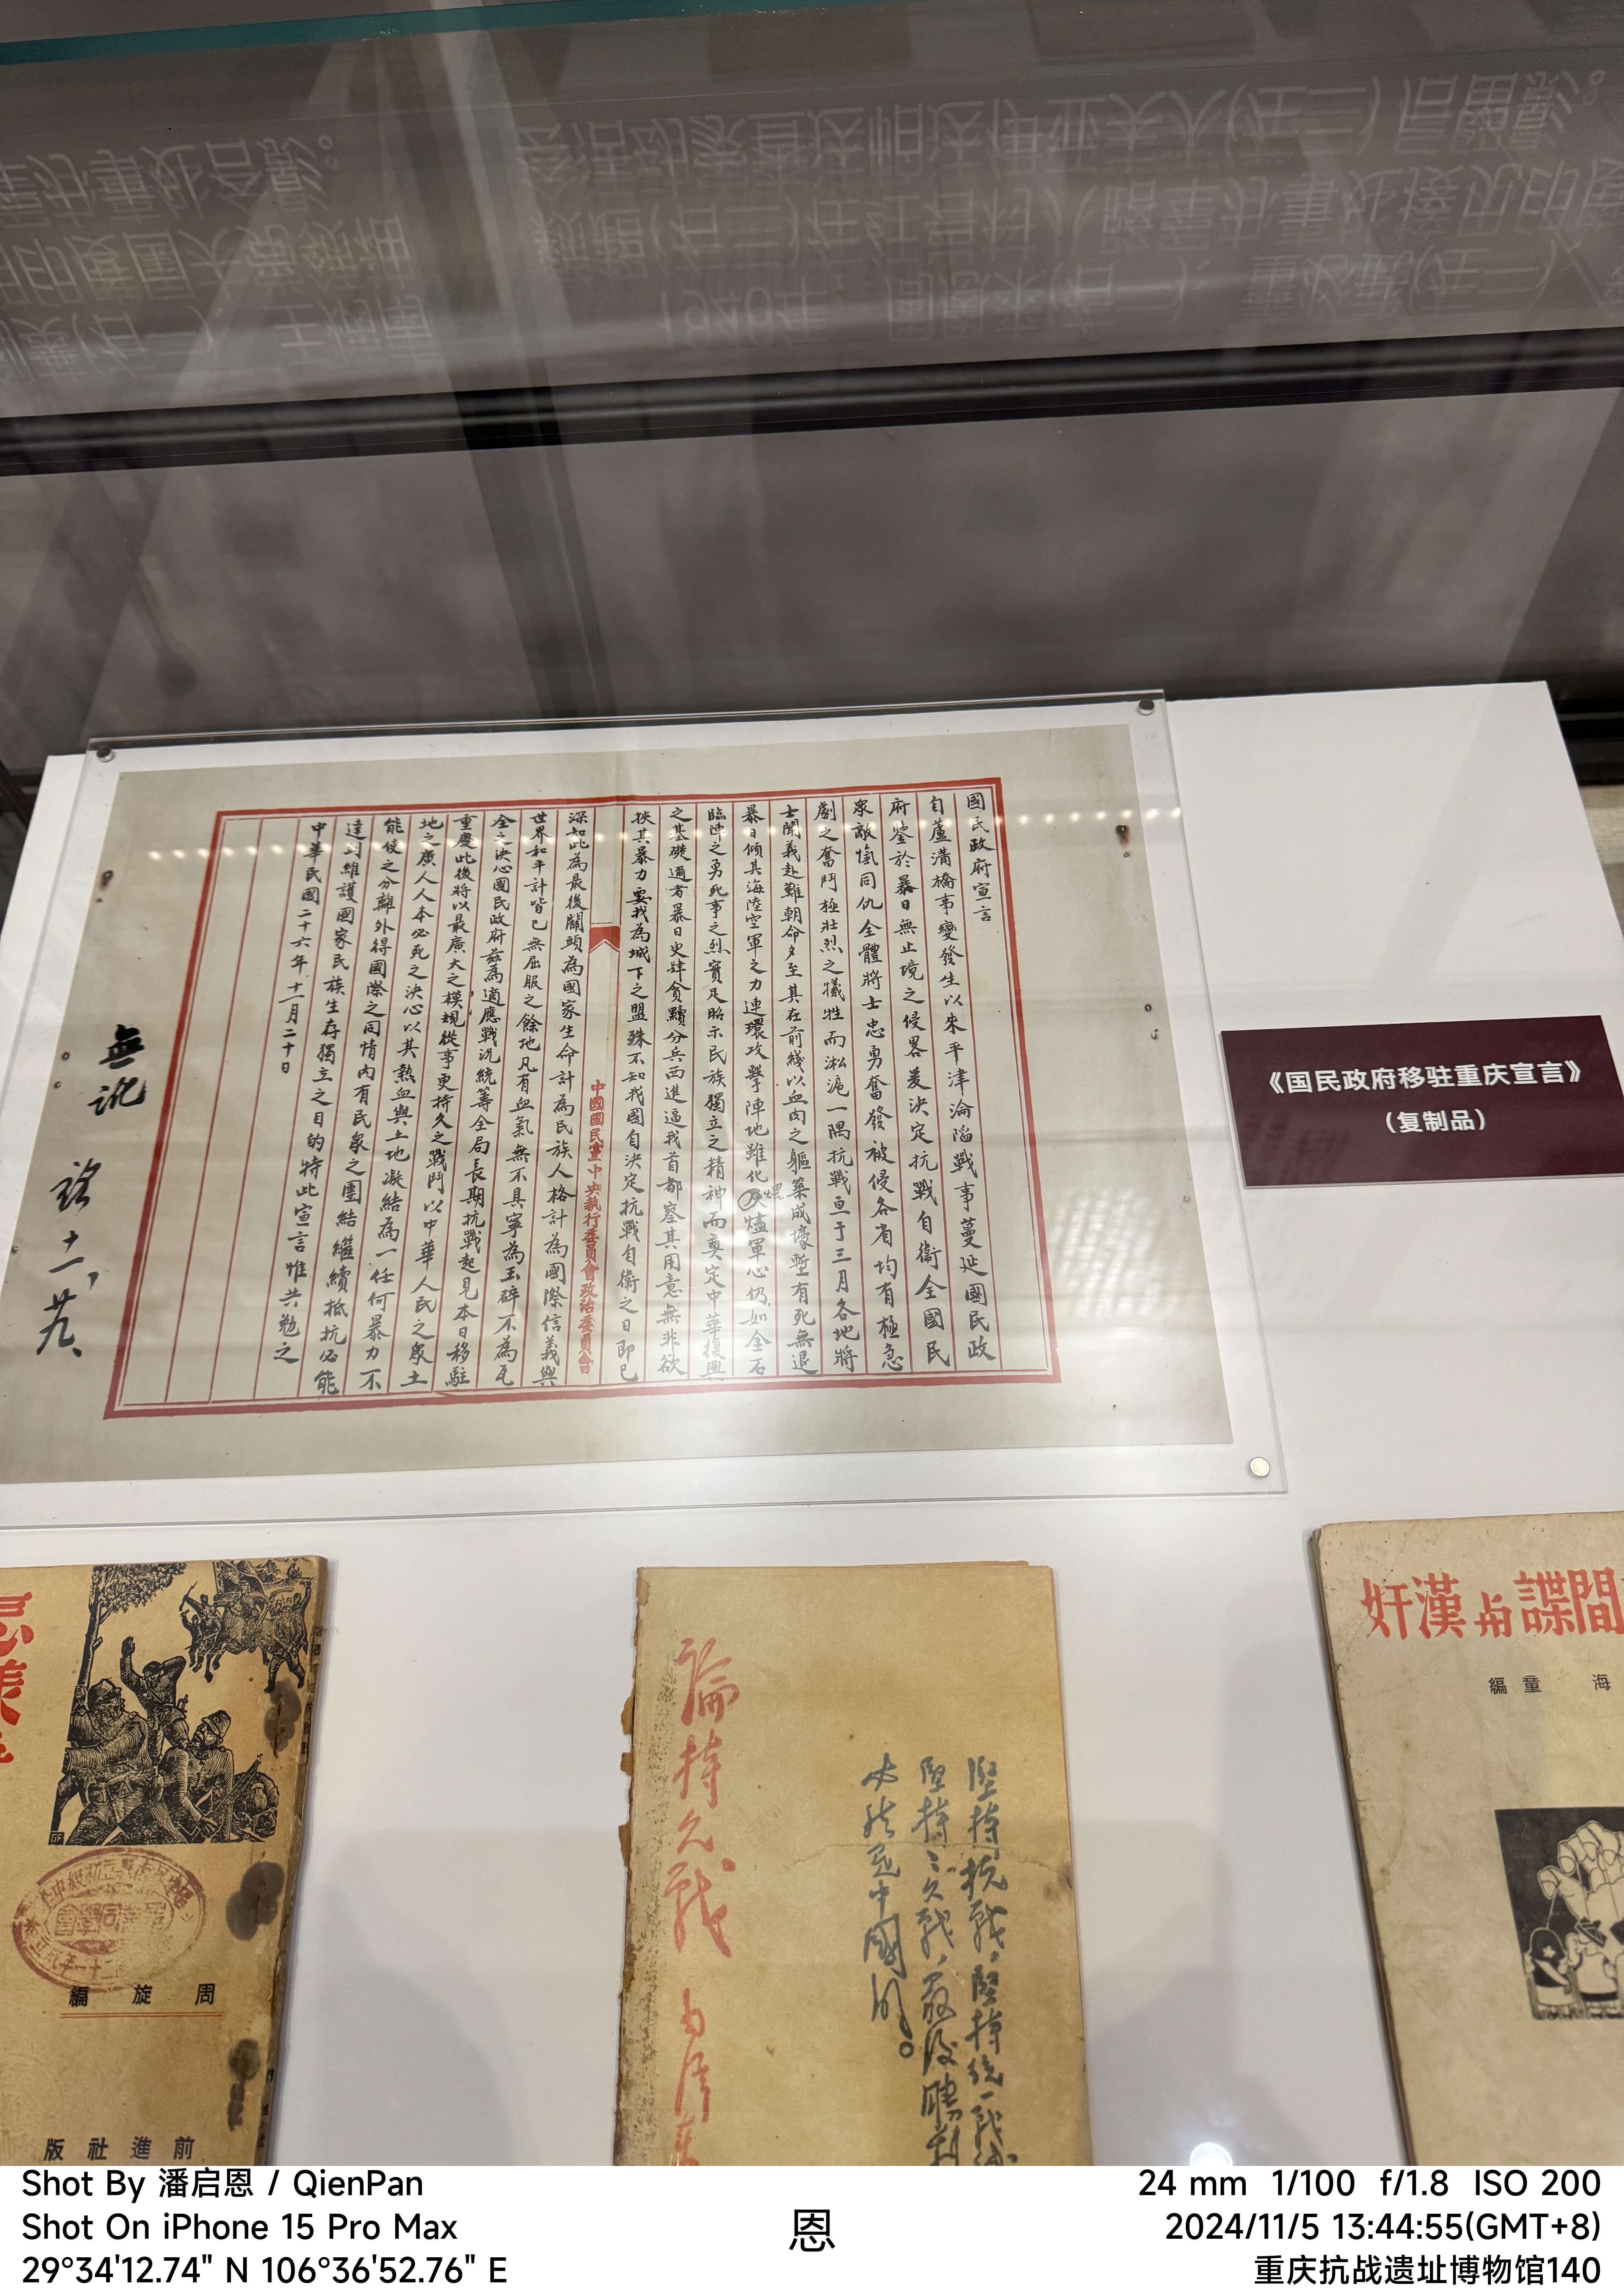 國民政府宣言
自蘆溝橋事變發生以來平津淪陷戰事蔓延國民政
府鑒於暴日無止境之侵畧爰決定抗戰自衛全國民
眾敵愾同仇全體將士忠勇奮發被侵各省均有極急
劇之奮鬥極壯烈之犧牲而淞滬一隅抗戰亘于三月各地將
士聞義赴難朝命夕至其在前綫以血肉之軀築成壕塹有死無退
暴日傾其海陸空軍之力連環攻擊陣地雖化煨燼軍心仍如金石
臨陣之勇死事之烈實足昭示民族獨立之精神而奠定中華復興
之基礎邇者暴日更肆貪黷分兵西進逼我首都察其用意無非欲
挾其暴力要我為城下之盟殊不知我國自決定抗戰自衛之日即已
中國國民黨中央執行委員會政治委員會
深知此為最後關頭為國家生命計為民族人格計為國際信義與
世界和平計皆已無屈服之餘地凡有血氣無不具寧為玉碎不為瓦
全之決心國民政府茲為適應戰況統籌全局長期抗戰起見本日移駐
重慶此後將以最廣大之模規從事更持久之戰鬥以中華人民之眾土
地之廣人人本必死之決心以其熱血與土地凝結為一任何暴力不
能使之分離外得國際之同情內有民眾之團結繼續抵抗必能
達到維護國家民族生存獨立之目的特此宣言惟共勉之
中華民國二十六年十一月二十日
無訛
十一、廿九、
《国民政府移驻重庆宣言》
（复制品）
編 旋 周
版社進前
堅持抗戰，堅持統一戰
堅持持久戰，最後勝利
必然是中國的。
論持久戰
奸漢與諜間
編童 海
Shot By 潘启恩 / QienPan
Shot On iPhone 15 Pro Max
29°34'12.74" N 106°36'52.76" E
恩
24 mm 1/100 f/1.8 ISO 200
2024/11/5 13:44:55(GMT+8)
重庆抗战遗址博物馆140